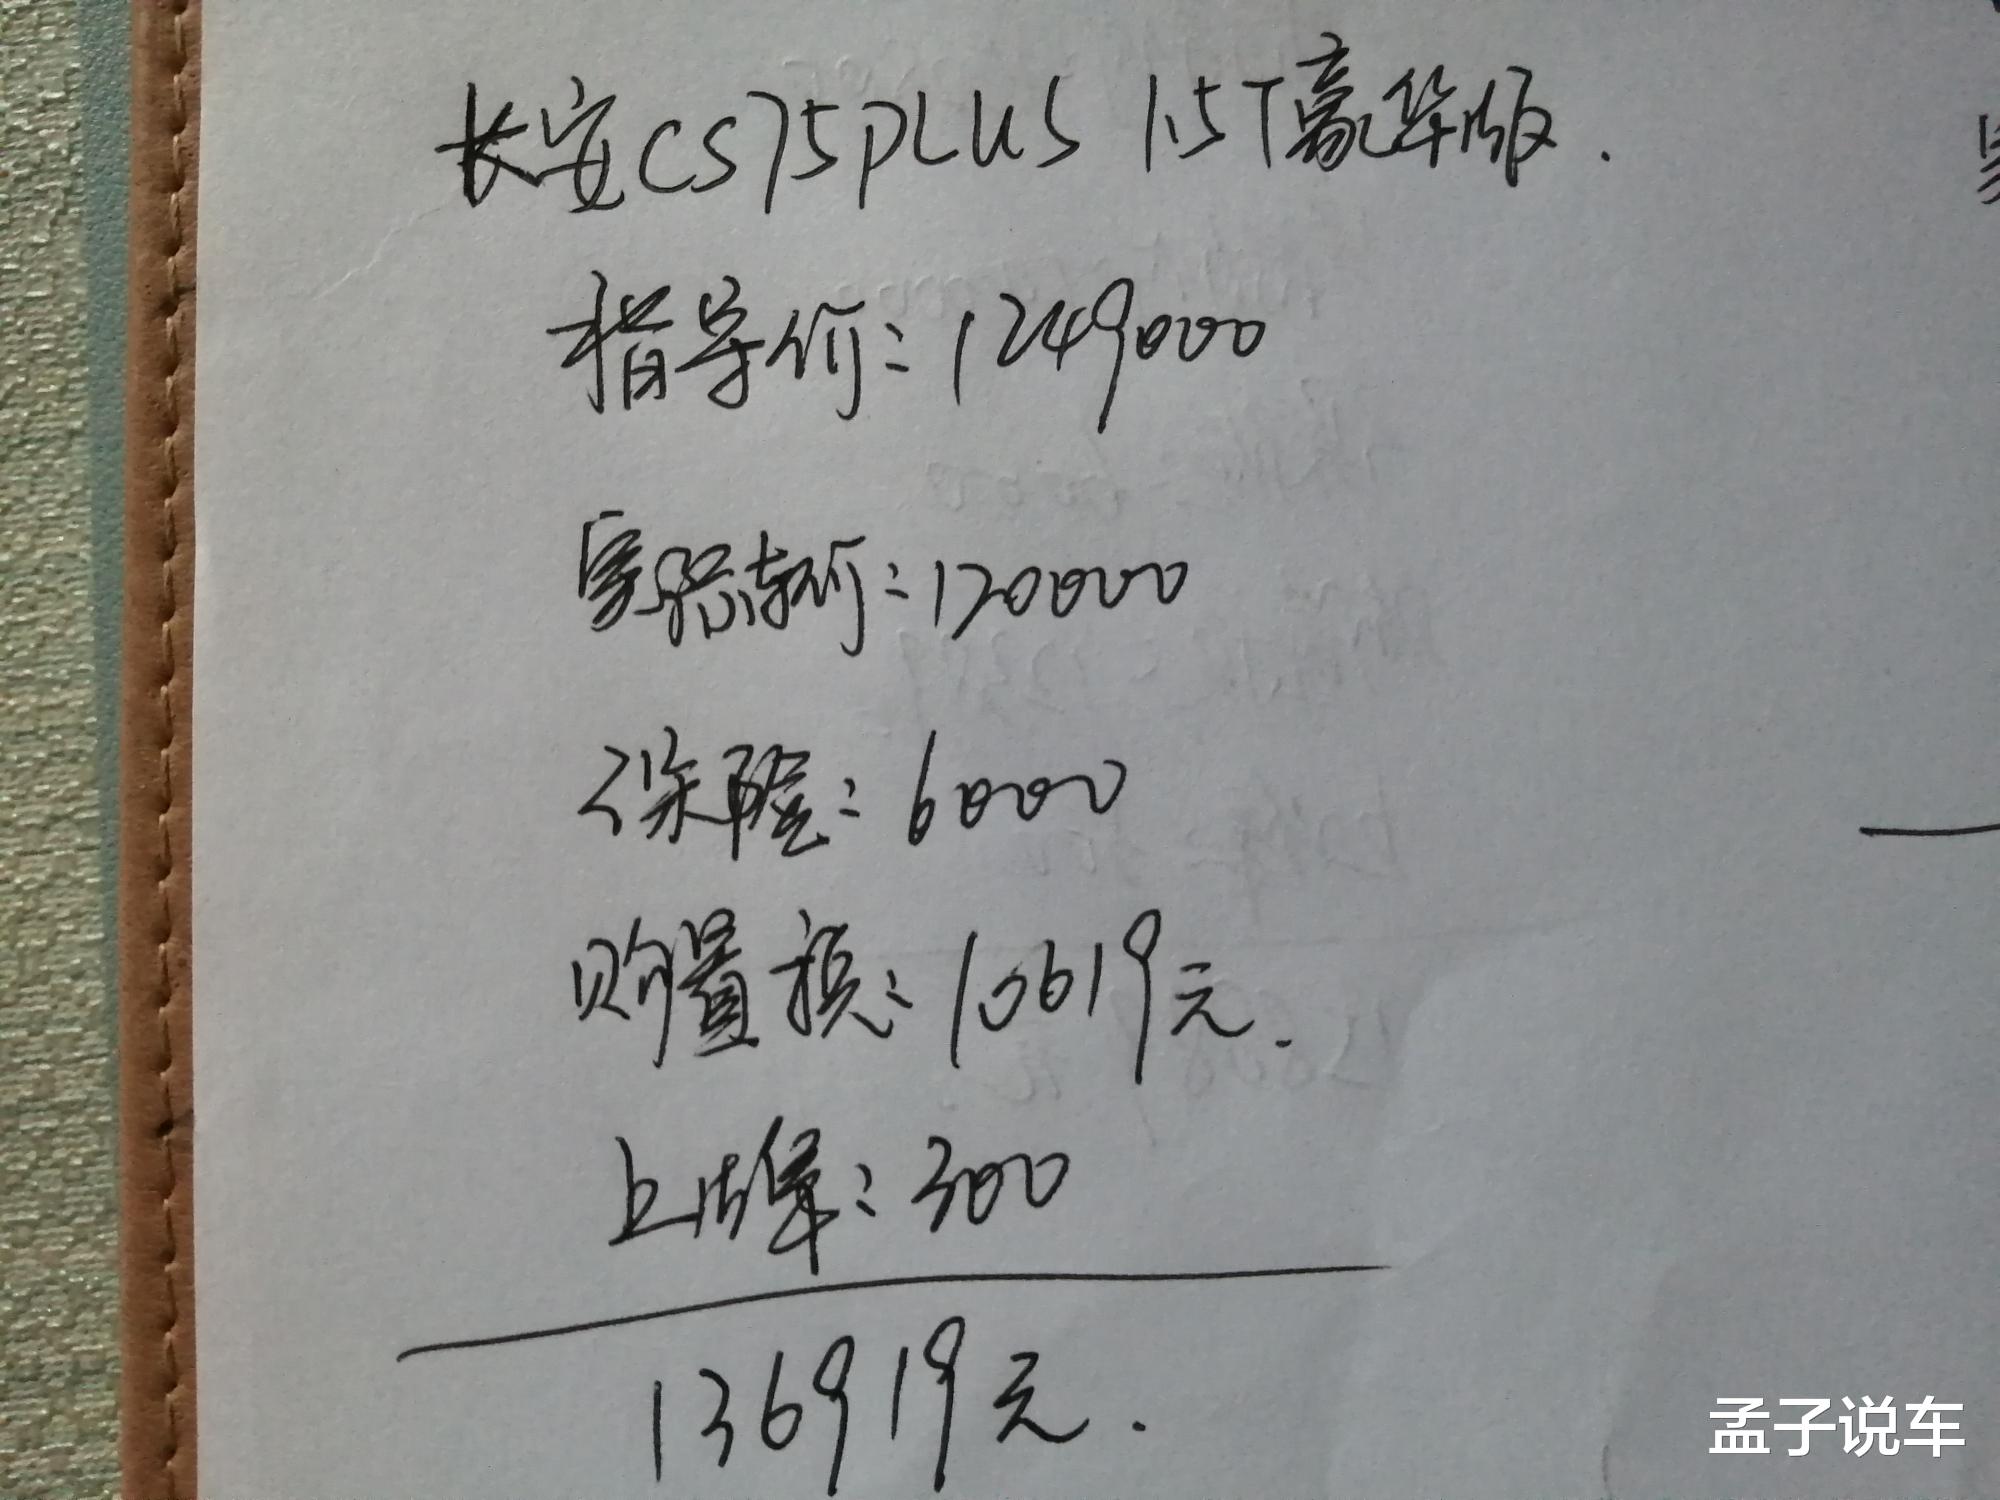 长安CS75PLUS 1.5T豪华版.
指导价:1249000
实际售价:120000
保险:6000
购置税:10619元.
上牌:300
136919元.
孟子说车